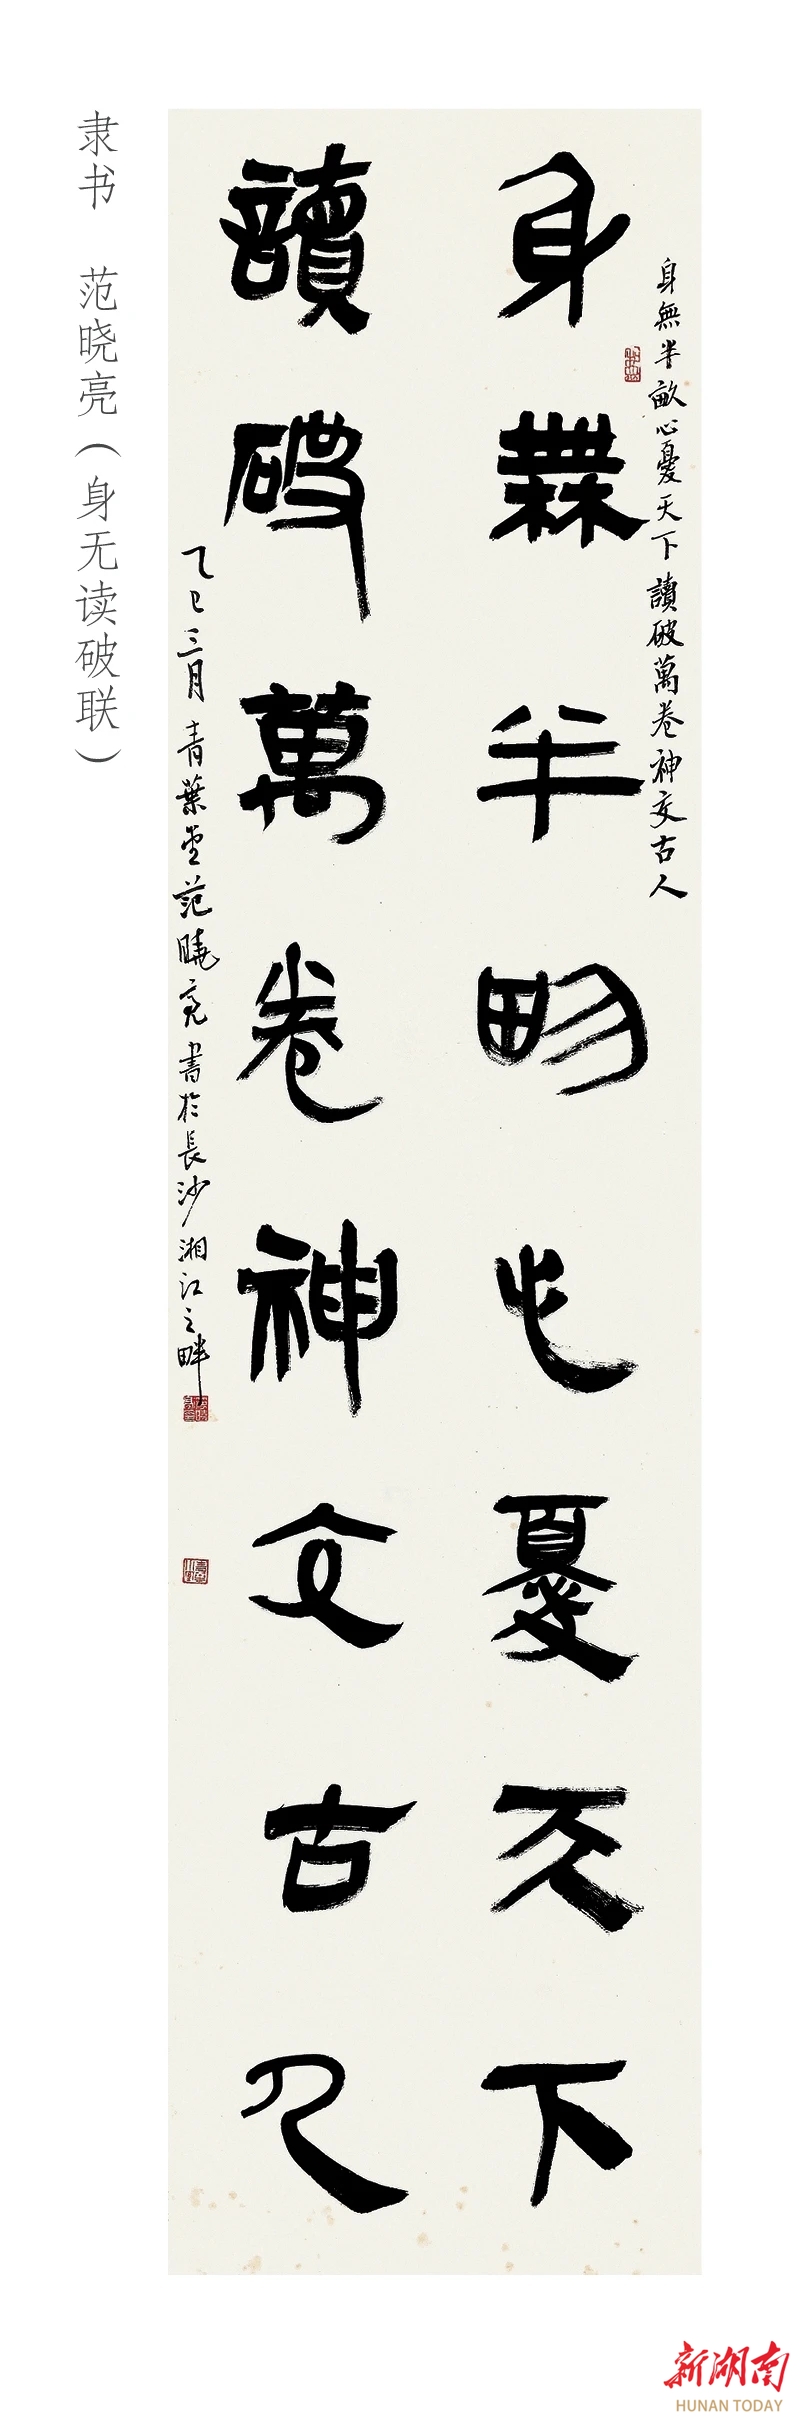 身無半畝心憂天下讀破萬卷神交古人
身無半畝心憂天下
讀破萬卷神交古人
乙巳三月青葉堂范曉亮書於長沙湘江之畔
隶书 范晓亮（身无读破联）
新湖南
HUNAN TODAY